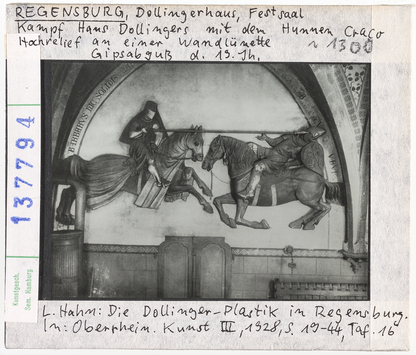 REGENSBURG, Dollingerhaus, Festsaal
Kampf Hans Dollingers mit dem Hunnen Craco
Hochrelief an einer Wandlünette ~ 1300
Gipsabguß d. 19. Jh.
137794
Kunstgesch.
Sem. Hamburg
L. Hahn: Die Dollinger-Plastik in Regensburg.
In: Oberrhein. Kunst III, 1928, S. 19-44, Taf. 16